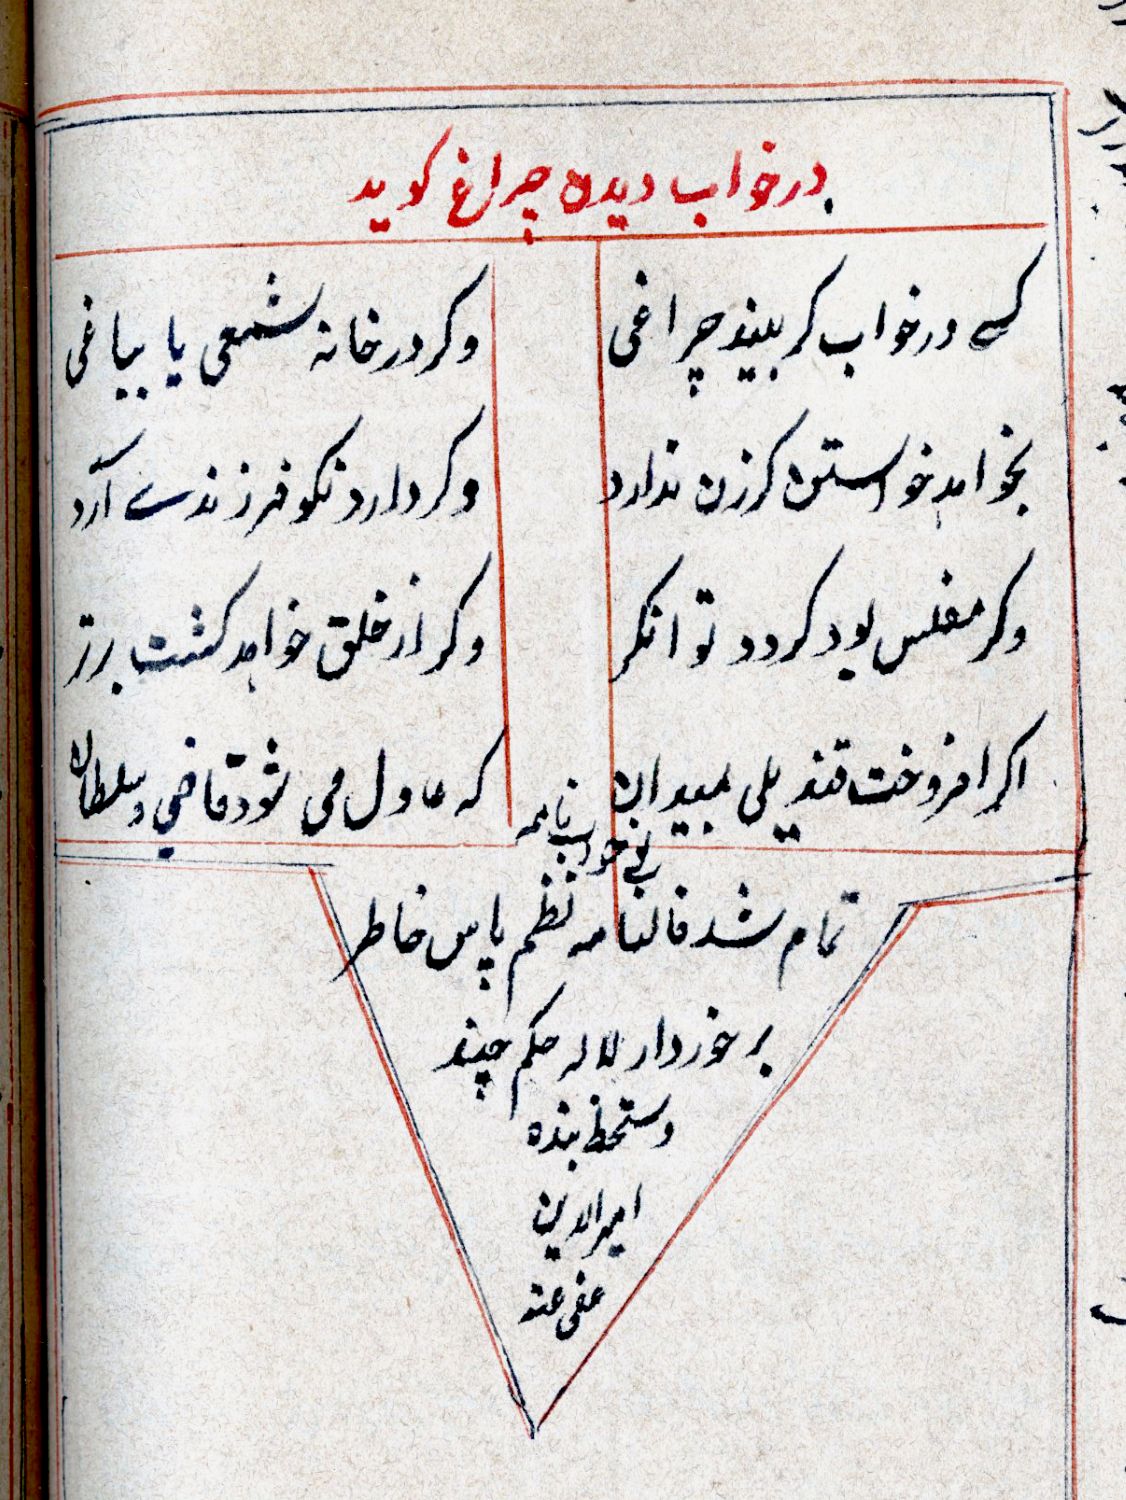 در خواب دیدن چراغ کوید
کسی در خواب کر بیند چراغی وکر در خانه شمعی یا بیاغی
بخواهد خواستن کر زن ندارد وکر دارد نکو فرزندے آرد
وکر مفلس بود کردد توانکر وکر از خلق خواهد کشت برتر
اکر افروخت قندیلی بمیدان که عادل می شود قاضی و سلطان
یعنی خواب نامه
تمام شد فالنامه نظم پاس خاطر
برخوردار لاله حکم چند
دستخط بنده
امیرالدین
عفی عنه